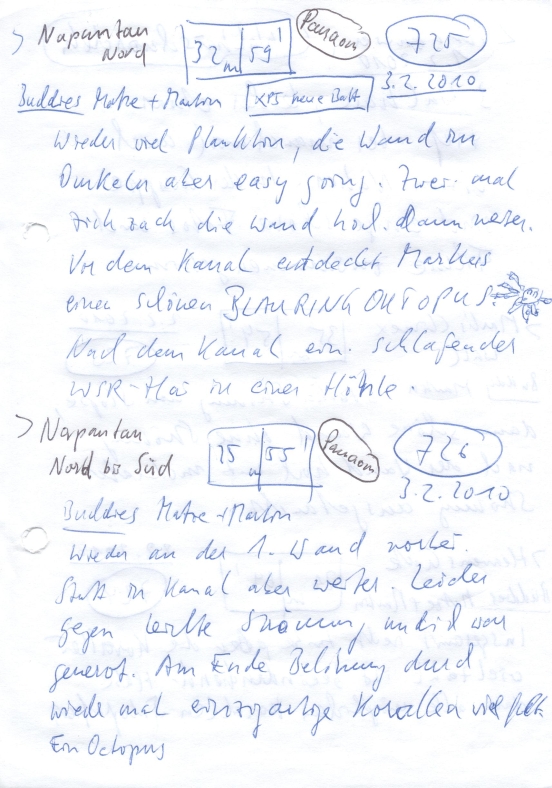 > Napantao Nord 32m 59' Panaom 725
3.2.2010
Buddies Matze + Marton XP5 neue Batt
Wieder viel Plankton, die Wand im
Dunkeln aber easy going. Zwei mal
zick zack die Wand hoch. Dann weiter.
Vor dem Kanal entdeckt Markus
einen schönen BLAURING OKTOPUS.
Nach dem Kanal ein schlafender
WSR-Hai in einer Höhle.
> Napantao Nord bis Süd 25m 55' Panaom 726
3.2.2010
Buddies Matze + Marton
Wieder an der 1. Wand vorbei.
Statt in Kanal aber weiter. Leider
gegen leichte Strömung und ich war
genervt. Am Ende Belohnung durch
wieder mal einzigartige Korallen viel
Ein Octopus